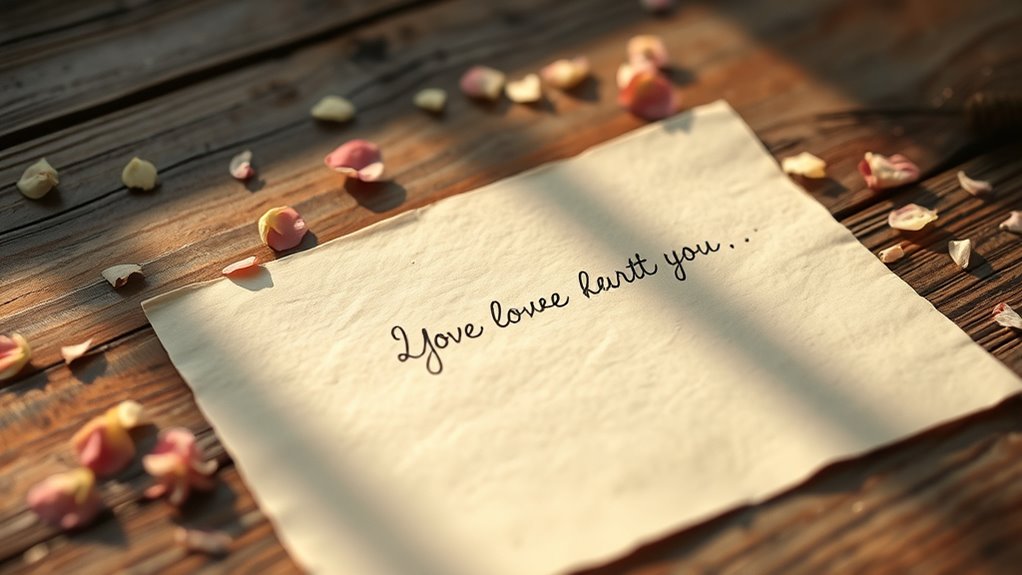 Yove lovee hurtt you...